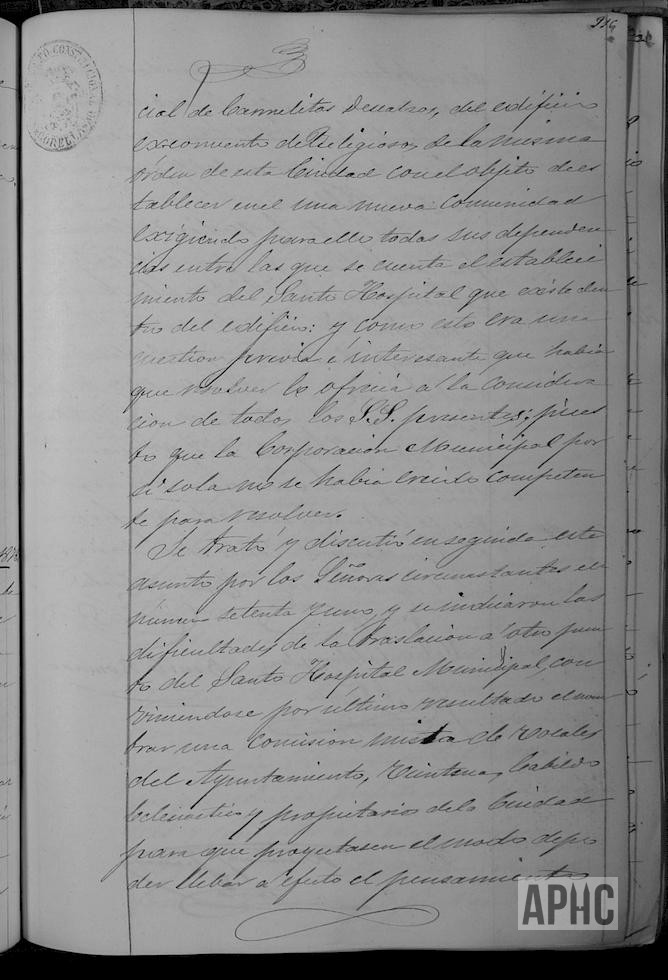 116
cial de Carmelitas Descalzos, del edificio
exconvento de Religiosos de la misma
órden de esta Ciudad con el objeto de es
tablecer en el una nueva Comunidad
exigiendo para ello todas sus dependen
cias entre las que se cuenta el estableci
miento del Santo Hospital que existe den
tro del edificio: y como esto era una
cuestion previa é interesante que habia
que resolver lo ofrecia á la considera
cion de todos los S.S. presentes; pues
to que la Corporacion Municipal por
si sola no se habia creido competen
te para resolver.
Se trató y discutió en seguida este
asunto por los Señores circunstantes en
número setenta y uno, y se indicaron las
dificultades de la traslacion á otro pun
to del Santo Hospital Municipal, con
viniendose por último resultado el nom
brar una Comision mista de Vocales
del Ayuntamiento, Veintena, Cabildo
Eclesiastico y propietarios de la Ciudad
para que proyectasen el modo de po
der llebar á efecto el pensamiento
APHC